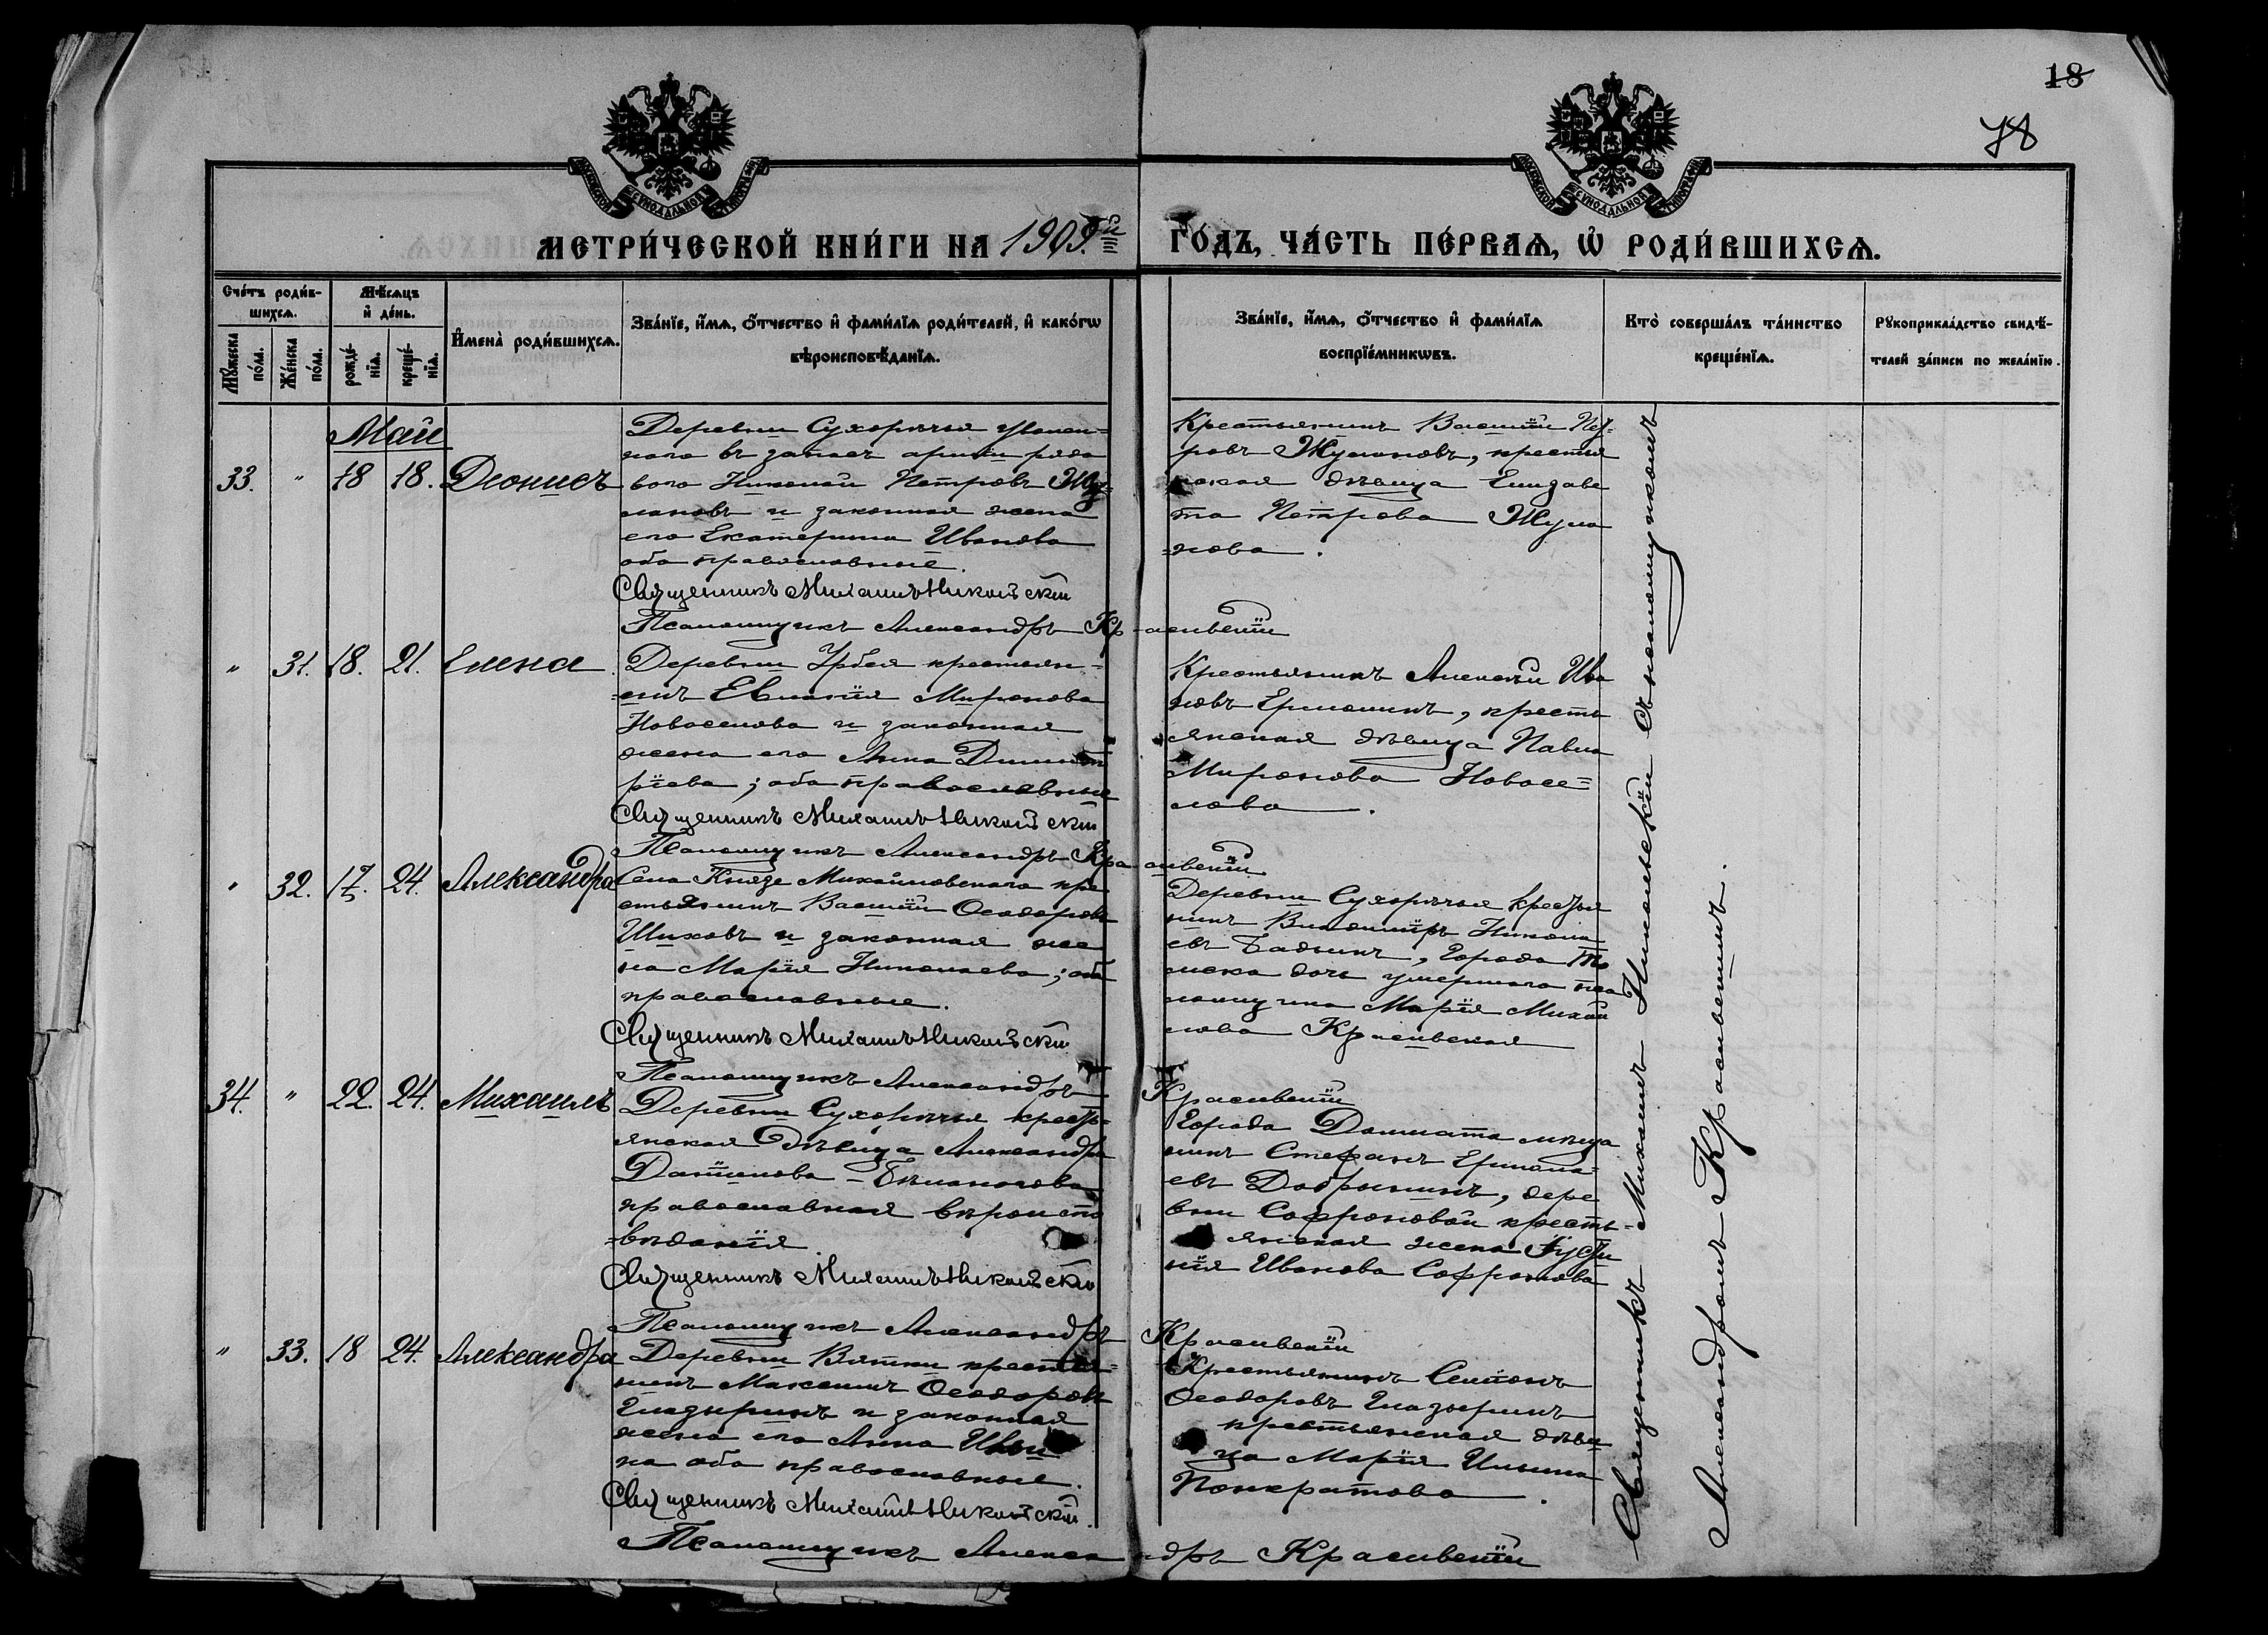 18
78
МОСКОВСКОЙ СѴНОДАЛЬНОЙ ТИПОГРАФІИ
МОСКОВСКОЙ СѴНОДАЛЬНОЙ ТИПОГРАФІИ
МЕТРИ́ЧЕСКОЙ КНИ́ГИ НА 1909й ГО́ДЪ, ЧА́СТЬ ПЕ́РВАЯ, Ѡ҆ РОДИ́ВШИХСѦ.
Сче́тъ роди́в-
шихсѧ.
Мꙋ́жеска по́ла.
Же́нска по́ла.
Мѣ́сѧцъ
и҆ де́нь.
рожде́-
нїѧ.
креще́-
нїѧ.
И҆мена̀ роди́вшихсѧ.
Зва́нїе, и҆́мѧ, ѻ҆́тчество и҆ фами́лїѧ роди́телей, и҆ како́гѡ
вѣроисповѣ́данїѧ.
Зва́нїе, и҆́мѧ, ѻ҆́тчество и҆ фами́лїѧ
воспрїе́мникѡвъ.
Кто̀ соверша́лъ та́инство
креще́нїѧ.
Рꙋкоприкла́дство свидѣ́-
телей за́писи по жела́нїю.
Май
33. " 18 18. Деонисъ
Деревни Сухоречья уволен=
наго въ запасъ арміи рядо
вого Николай Петровъ Жу=
лановъ и законная жена
его Екатерина Иванова
оба православные.
Священникъ Михаилъ Никольскій
Псаломщикъ Александръ Красивскій
Крестьянинъ Василій Пет=
ровъ Жулановъ, крестья
нская дѣвица Елизаве
та Петрова Жула
=нова.
" 31. 18. 21. Елена.
Деревни Урбея крестьян=
инъ Миронова
Новоселова и законная
жена его Анна Димит
ріева; оба православные
Священникъ Михаилъ Никольскій
Псаломщикъ Александръ Красивскій
Крестьянинъ Алексѣй Ива
новъ Ермолинъ, кресть
янская дѣвица Павла
Миронова Новосе=
лова.
" 32. 17. 24. Александра
Села Князе Михайловскаго кре
стьянинъ Василій Ѳеодоровъ
Шиховъ и законная же
на Марія Николаева; оба
православные.
Священникъ Михаилъ Никольскій
Псаломщикъ Александръ Красивскій
Деревни Сухоречья крестья
нинъ Никола
евъ Бадьинъ, города То
мска дочь умершаго пса
ломщика Марія Михай
лова Красивская
34. " 22. 24. Михаилъ
Деревни Сухоречья кресть=
янская дѣвица Александра
Данилова Бѣлоногова
православная вѣроиспо
=вѣданія.
Священникъ Михаилъ Никольскій
Псаломщикъ Александръ Красивскій
Города Далмата мѣща
нинъ Стефанъ Ермола=
евъ Добрынинъ, дере
вни Софроновой кресть=
янская жена Іусти
нія Иванова Софронова
" 33. 18 24. Александра
Деревни Вятки крестья=
нинъ Максимъ Ѳеодоровъ
Глазыринъ и законная
жена его Анна
на оба православные.
Священникъ Михаилъ Никольскій
Псаломщикъ Александръ Красивскій
Крестьянинъ Симеонъ
Ѳеодоровъ Глазыринъ
крестьянская дѣви
ца Марія Ильина
Понкратова.
Священникъ Михаилъ Никольскій съ псаломщикомъ
Александромъ Красивскимъ.